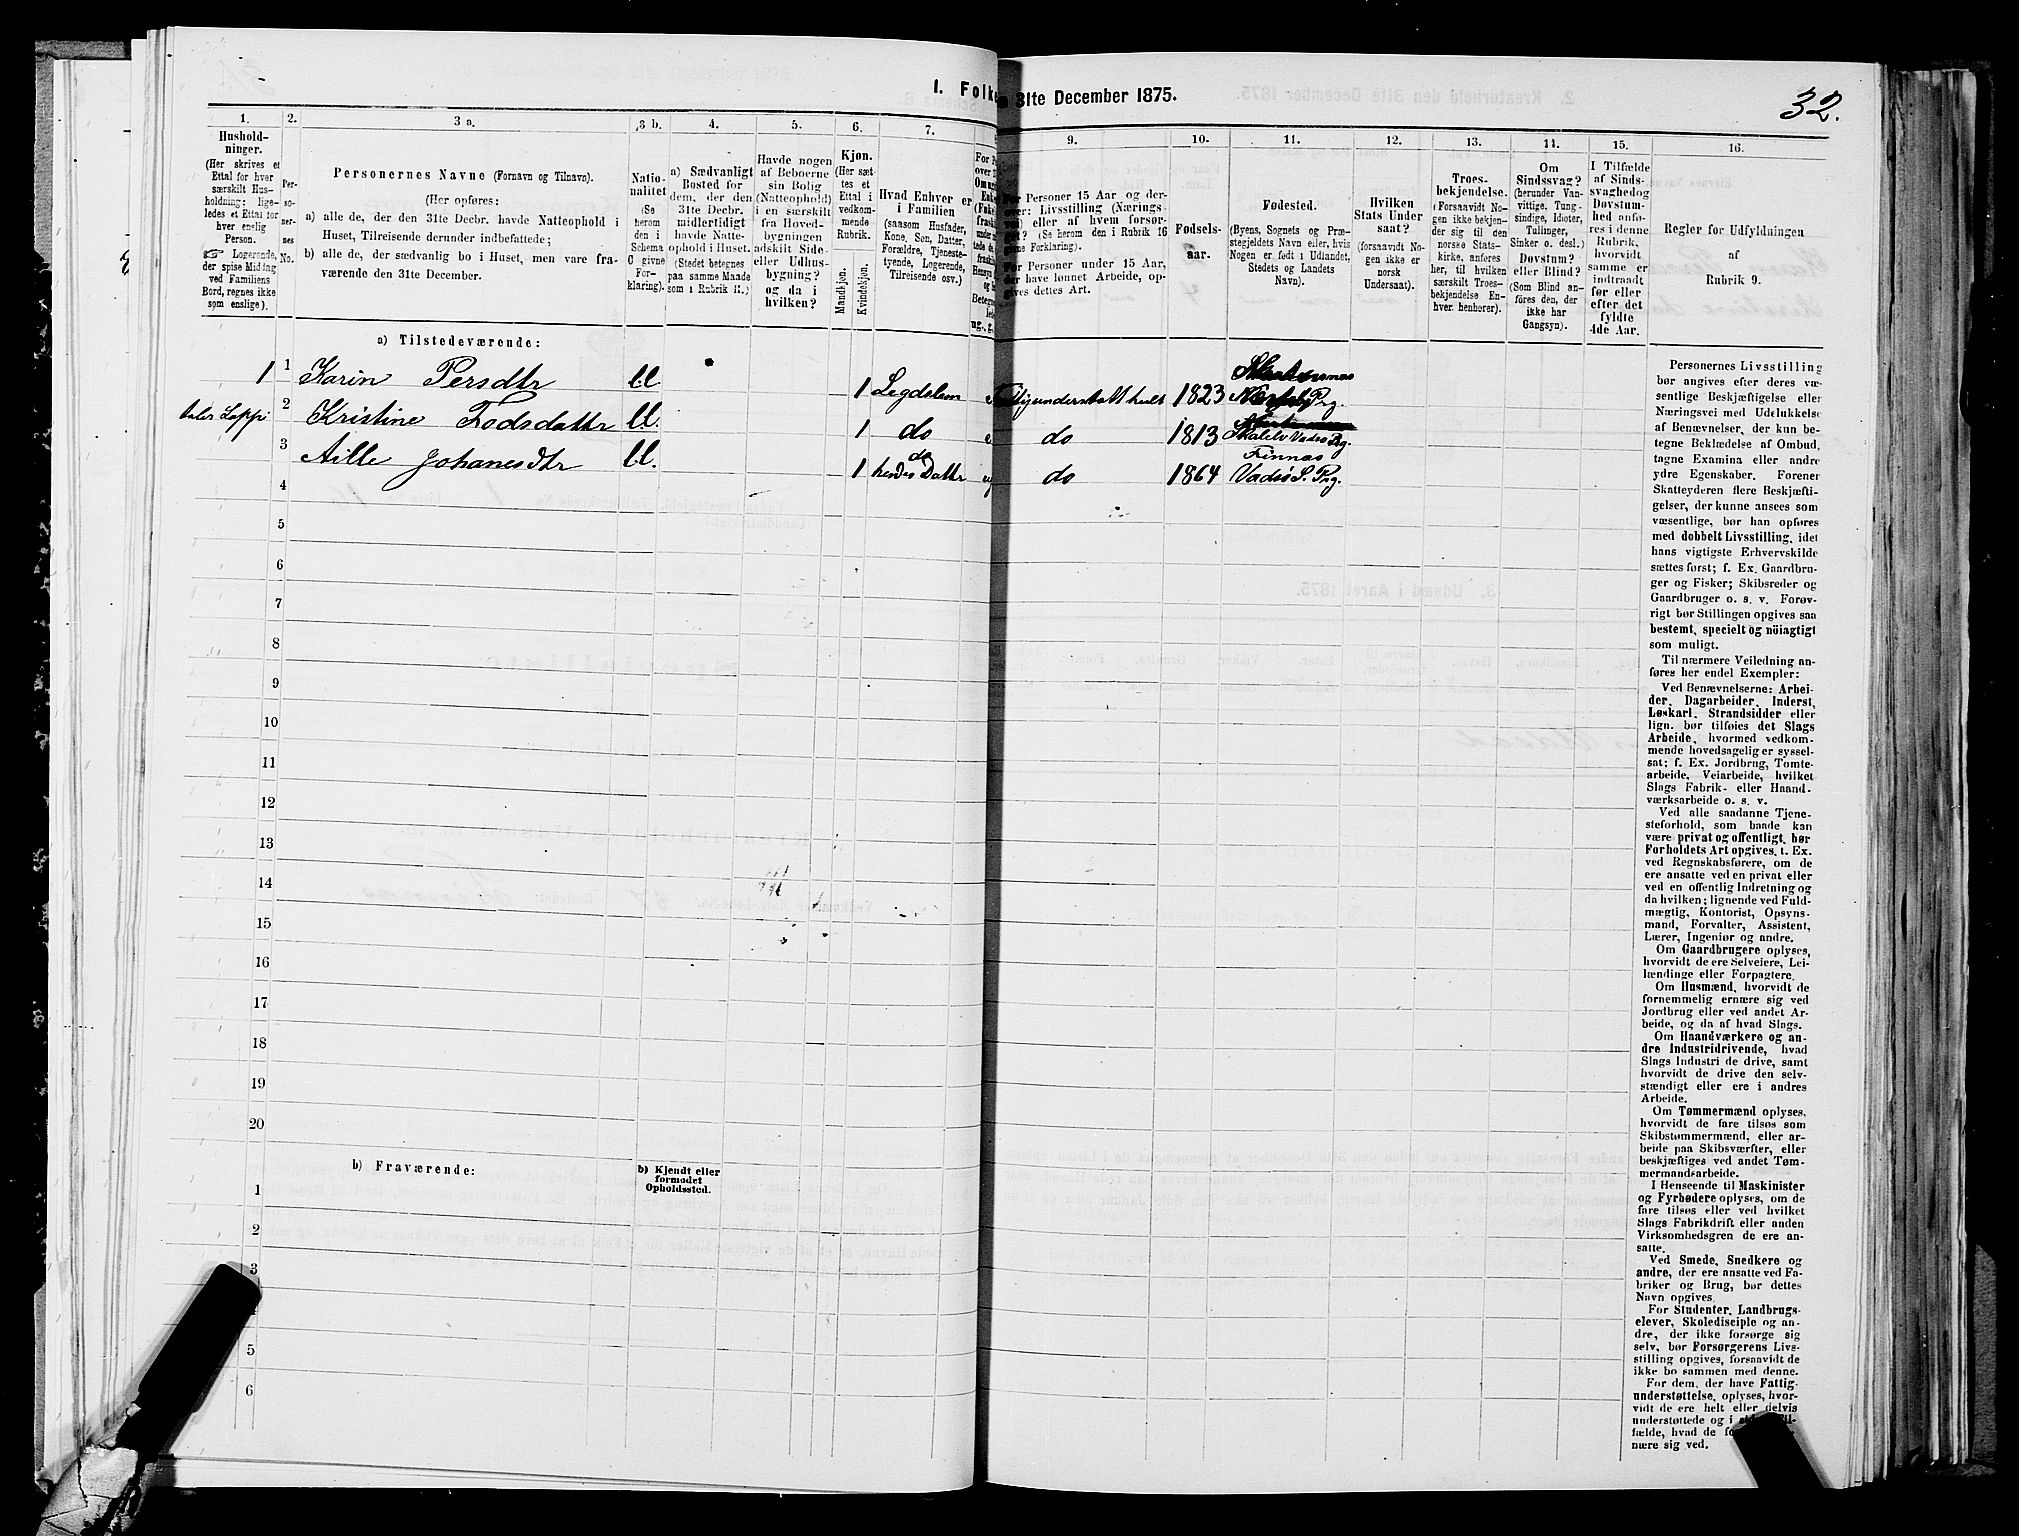 32.
1. Folke
n 31te December 1875.
1.
2.
3 a.
3 b.
4.
5.
6.
7.
9.
10.
11.
12.
13.
14.
15.
16.
Hushold-
ninger.
(Her skrives et
Ettal for hver
særskilt Hus-
holdning; lige-
ledes et Ettal for
hver enslig
Person.
☞ Logerende,
der spise Middag
ved Familiens
Bord, regnes ikke
som enslige).
Per-
so-
ner-
nes
No.
Personernes Navne (Fornavn og Tilnavn).
(Her opføres:
a) alle de, der den 31te Decbr. havde Natteophold i
Huset, Tilreisende derunder indbefattede;
b) alle de, der sædvanlig bo i Huset, men vare fra-
værende den 31te December.
Natio-
nalitet
(Se
herom
den i
Schema
C givne
For-
klaring).
a) Sædvanligt
Bosted for
dem, der den
31te Decbr.
midlertidigt
havde Natte-
ophold i Huset.
(Stedet betegnes
paa samme Maade
som i Rubrik 11.)
Havde nogen
af Beboerne
sin Bolig
(Natteophold)
i en særskilt
fra Hoved-
bygningen
adskilt Side-
eller Udhus-
bygning?
og da i
hvilken?
Kjøn.
(Her sæt-
tes et
Ettal i
vedkom-
mende
Rubrik.
Mandkjøn.
Kvindekjøn.
Hvad Enhver er
i Familien
(saasom Husfader,
Kone, Søn, Datter,
Forældre, Tjeneste-
tyende, Logerende,
Tilreisende osv.)
For Personer 15 Aar og der-
over: Livsstilling (Nærings-
vei) eller af hvem forsør-
get? (Se herom den i Rubrik 16
givne Forklaring).
For Personer under 15 Aar,
der have lønnet Arbeide, op-
gives dettes Art.
Fødsels-
aar.
Fødested.
(Byens, Sognets og Præ-
stegjeldets Navn eller, hvis
Nogen er født i Udlandet,
Stedets og Landets
Navn).
Hvilken
Stats Under-
saat?
(forsaavidt No-
gen ikke er
norsk
Undersaat).
Troes-
bekjendelse.
(Forsaavidt No-
gen ikke bekjen-
der sig til den
norske Stats-
kirke, anføres
her, til hvilken
særskilt Troes-
bekjendelse En-
hver henhører).
Om
Sindssvag?
(herunder Van-
vittige, Tung-
sindige, Idioter,
Tullinger,
Sinker o. desl.)
Døvstum?
eller Blind?
(Som Blind an-
føres den, der
ikke har
Gangsyn).
I Tilfælde
af Sinds-
svaghed og
Døvstum-
hed anfø-
res i denne
Rubrik,
hvorvidt
samme er
indtraadt
før eller
efter det
fyldte
4de Aar.
Regler for Udfyldningen
af
Rubrik 9.
a) Tilstedeværende:
1 1 Karin Persdtr 1 Legdslem Fattigunderstøtt helt 1823 Næsseby Prg.
taler Lappi 2 Kristine Todsdattr 1 do do 1813 Vadsø Prg.
3 Aille Johanesdtr 1 do hendes Dattr do 1864 Finnæs Vadsø S. Prg.
4
5
6
7
8
9
10
11
12
13
14
15
16
17
18
19
20
b) Fraværende:
b) Kjendt eller
formodet
Opholdssted.
1
2
3
5
6
Personernes Livsstilling
bør angives efter deres væ-
sentlige Beskjæftigelse eller
Næringsvei med Udelukkelse
af Benævnelser, der kun be-
tegne Beklædelse af Ombud,
tagne Examina eller andre
ydre Egenskaber. Forener
Skatteyderen flere Beskjæfti-
gelser, der kunne ansees som
væsentlige, bør han opføres
med dobbelt Livsstilling, idet
hans vigtigste Erhvervskilde
sættes først; f. Ex. Gaardbru-
ger og Fisker; Skibsreder og
Gaardbruger o. s. v. Forøv-
rigt bør Stillingen opgives saa
bestemt, specielt og nöiagtigt
som muligt.
Til nærmere Veiledning an-
føres her endel Exempler:
Ved Benævnelserne: Arbei-
der, Dagarbeider, Inderst,
Løskarl, Strandsidder eller
lign. bør tilføies det Slags
Arbeide, hvormed vedkom-
mende hovedsagelig er syssel-
sat; f. Ex. Jordbrug, Tomte-
arbeide, Veiarbeide, hvilket
Slags Fabrik- eller Haand-
værksarbeide o. s. v.
Ved alle saadanne Tjene-
steforhold, som baade kan
være privat og offentligt, bør
Forholdets Art opgives, t. Ex.
ved Regnskabsførere, om de
ere ansatte ved en privat eller
ved en offentlig Indretning og
da hvilken; lignende ved Fuld-
mægtig, Kontorist, Opsyns-
mand, Forvalter, Assistent,
Lærer, Ingeniør og andre.
Om Gaardbrugere oplyses,
hvorvidt de ere Selveiere, Lei-
lændinge eller Forpagtere.
Om Husmænd, hvorvidt de
fornemmelig ernære sig ved
Jordbrug eller ved andet Ar-
beide, og da af hvad Slags.
Om Haandværkere og an-
dre Industridrivende, hvad
Slags Industri de drive, samt
hvorvidt de drive den selv-
stændigt eller ere i andres
Arbeide.
Om Tømmermænd oplyses,
hvorvidt de fare tilsøs som
Skibstømmermænd, eller ar-
beide paa Skibsværfter, eller
beskjæftiges ved andet Tøm-
mermandsarbeide.
I Henseende til Maskinister
og Fyrbødere oplyses, om de
fare tilsøs eller ved hvilket
Slags Fabrikdrift eller anden
Virksomhedsgren de ere an-
satte.
Ved Smede, Snedkere og
andre, der ere ansatte ved Fa-
briker og Brug, bør dettes
Navn opgives.
For Studenter, Landbrugs-
elever, Skoledisciple og an-
dre, der ikke forsørge sig
selv, bør Forsørgerens Livs-
stilling opgives, forsaavidt de
ikke bo sammen med denne.
For dem, der have Fattig-
understøttelse, oplyses, hvor-
vidt de ere helt eller delvis
understøttede og i sidste Til-
fælde, hvad de for
nære sig ved.